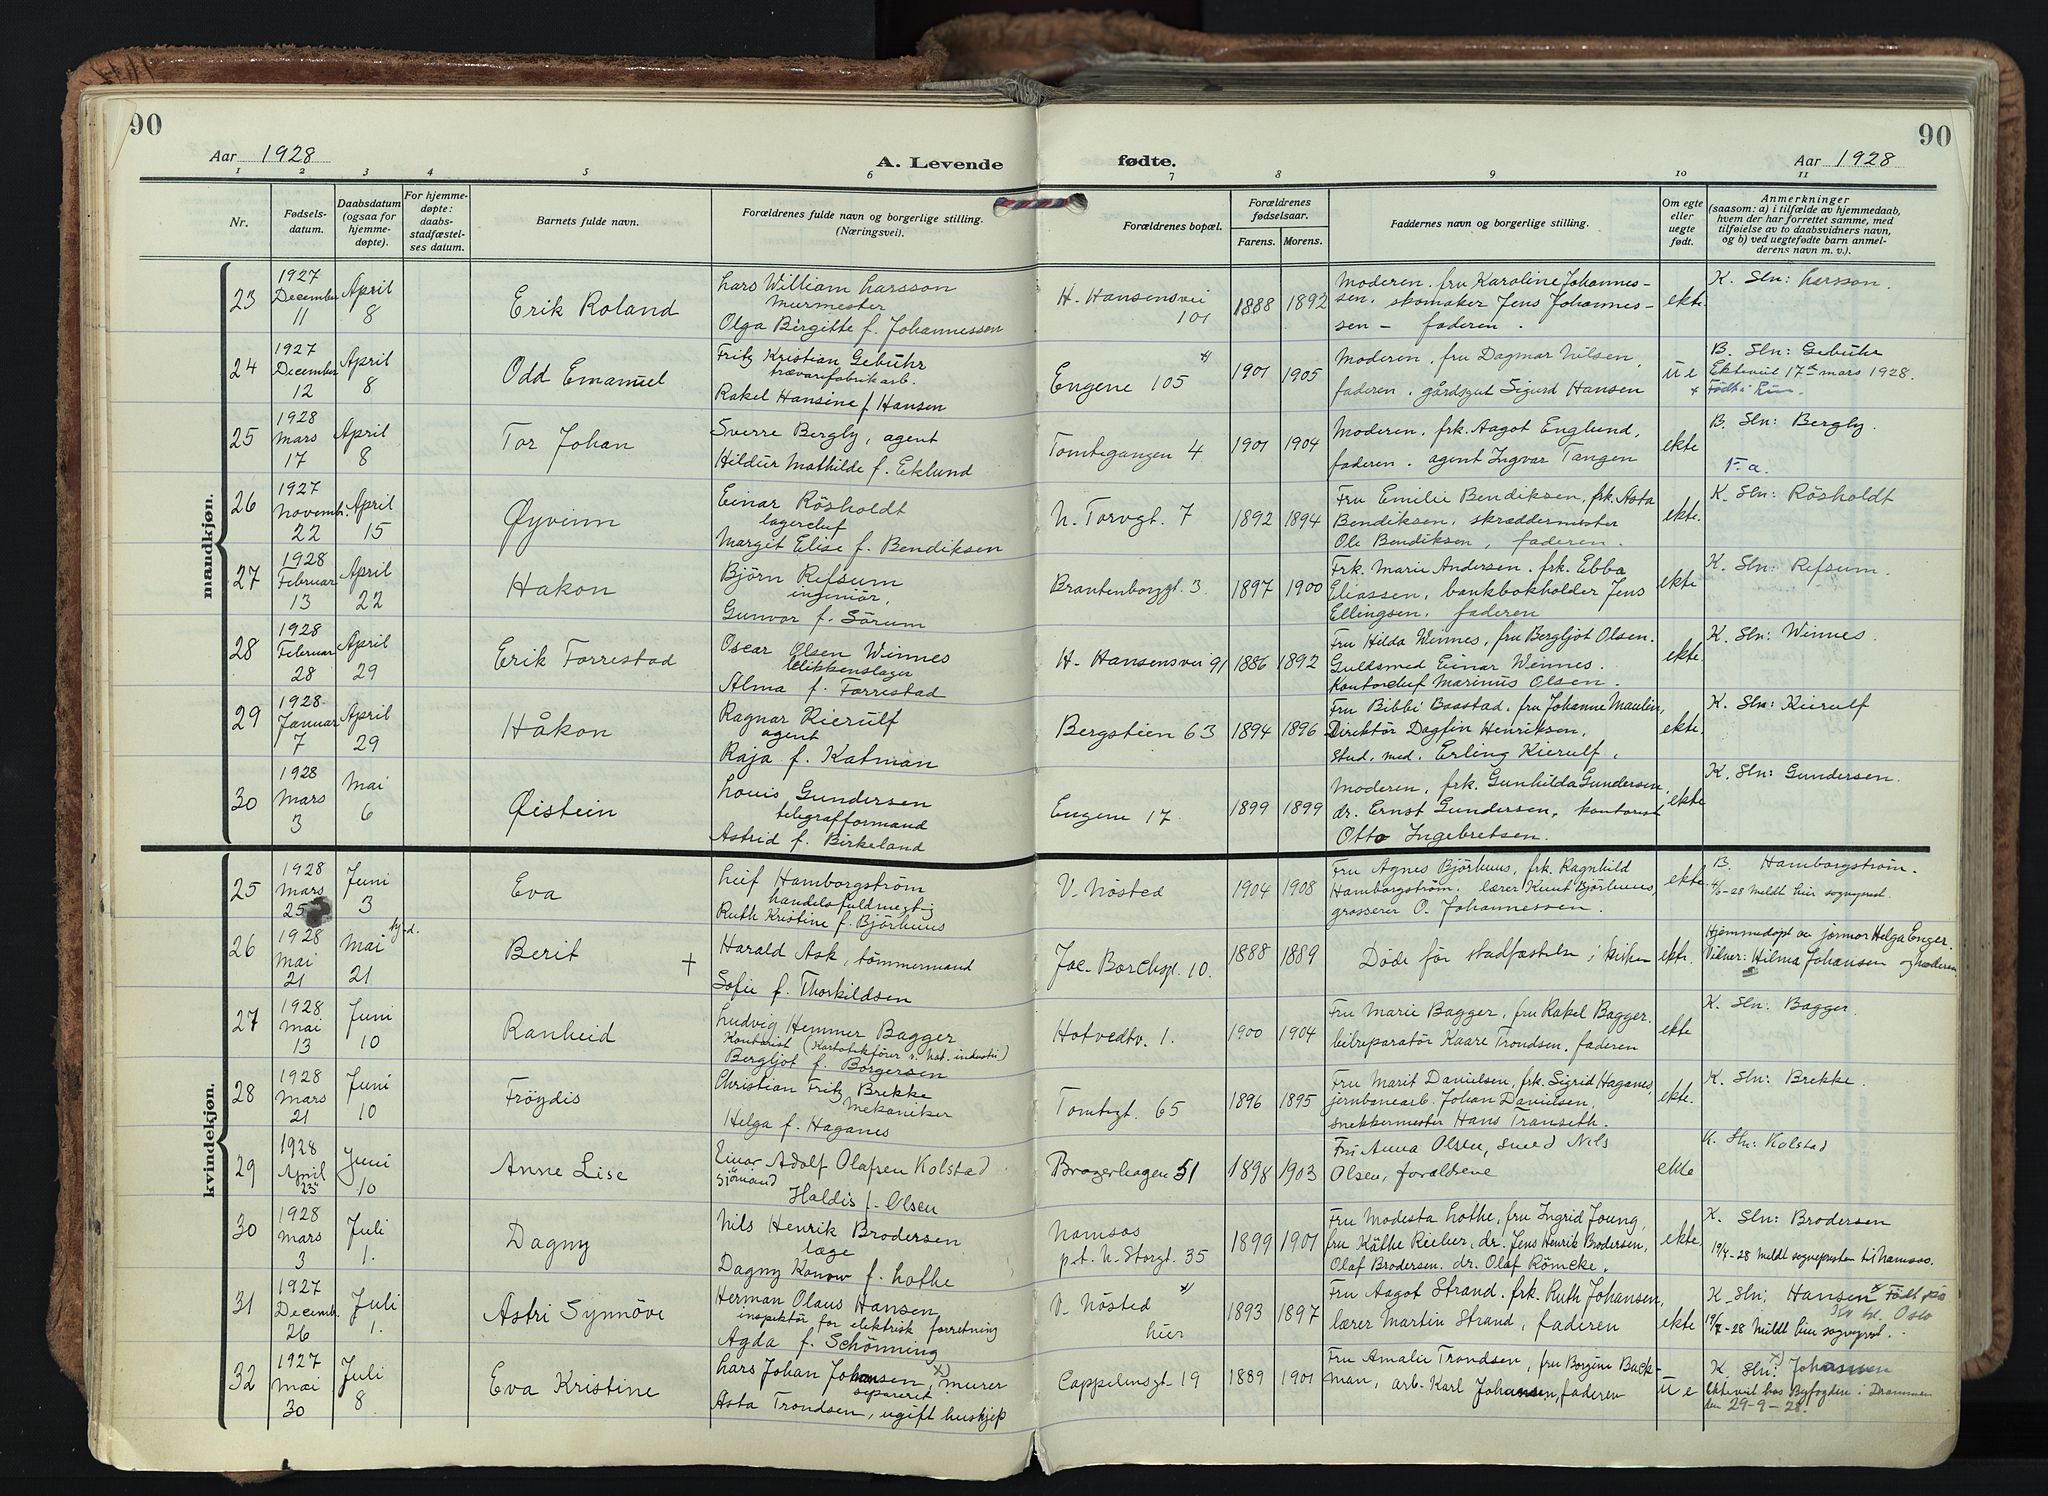 90
90
Aar 1928
A. Levende
fødte.
Aar 1928
1 2 3 4 5 6 7 8 9 10 11
Nr.
Fødsels-
datum.
Daabsdatum
(ogsaa for
hjemme-
døpte).
For hjemme-
døpte:
daabs-
stadfæstel-
ses datum.
Barnets fulde navn.
Forældrenes fulde navn og borgerlige stilling.
(Næringsvei).
Forældrenes bopæl.
Forældrenes
fødselsaar.
Farens. Morens.
Faddernes navn og borgerlige stilling.
Om egte
eller
uegte
født.
Anmerkninger
(saasom: a) i tilfælde av hjemmedaab,
hvem der har forrettet samme, med
tilføielse av to daabsvidners navn,
og b) ved uegtefødte barn anmel-
derens navn m. v.).
mandkjøn.
23
1927
December
11
April
8
Erik Roland
Lars William Larsson
Murmester
Olga Birgitte f. Johannessen
H. Hansensvei
101
1888 1892
Moderen, fru Karoline Johannes-
sen, skomaker Jens Johannes-
sen - faderen.
ekte
K. Sln: Larsson.
24
1927
December
12
April
8
Odd Emanuel
Fritz Kristian Gebuhr
trævarefabrikarb.
Rakel Hansine f. Hansen
Engene 105
1901 1905
Moderen, fru Dagmar Nilsen,
faderen, gårdsgut Sigurd Hansen
u e
B. Sln: Gebuhr
Ekteviet 17de mars 1928.
25
1928
Mars
17
April
8
Tor Johan
Sverre Bergly, agent
Hildur Mathilde f. Eklund
Tomtegangen 4
1901 1904
Moderen, frk. Aagot Englund,
faderen, agent Ingvar Tangen
ekte
B. Sln: Bergly.
F. a.
26
1927
Novembr.
22
April
15
Øyvinn
Einar Rösholdt
lagerchef
Margit Elise f. Bendiksen
N. Torvgt. 7
1892 1894
Fru Emilie Bendiksen, frk. Asta
Bendiksen, skræddermester
Ole Bendiksen, faderen.
ekte.
K. Sln: Rösholdt
27
1928
Februar
13
April
22
Hakon
Björn Refsum
ingeniör,
Gunvor f. Sörum
Brantenborggt. 3
1897 1900
Frk. Marie Andersen, frk. Ebba
Eliassen, bankbokholder Jens
Ellingsen, faderen
ekte
K. Sln: Refsum.
28
1928
Februar
28
April
29
Erik Forrestad
Oscar Olsen Winnes
blikkenslager
Alma f. Forrestad
H. Hansensvei 91
1886 1892
Fru Hilda Winnes, fru Bergljot Olsen.
Guldsmed Einar Winnes.
Kontorchef Marinus Olsen.
ekte
K. Sln: Winnes.
29
1928
Januar
7
April
29
Håkon
Ragnar Kierulf
agent
Raja f. Katman
Bergstien 63
1894 1896
Fru Bibbi Baastad, fru Johanne Maulin,
Direktör Dagfin Henriksen,
stud. med. Erling Kierulf.
ekte
K. Sln: Kierulf
30
1928
Mars
3
Mai
6
Øistein
Louis Gundersen
telegrafformand
Astrid f. Birkeland
Engene 17
1899 1899
Moderen, frk. Gunhilda Gundersen,
dr. Ernst Gundersen, kontorist
Otto Ingebretsen.
ekte
K. Sln: Gundersen.
kvindekjøn.
25
1928
Mars
25
Juni
3
Eva
Leif Hamborgström
handelsfuldmegtig
Ruth Kristine f. Björhuus
V. Nösted
1904 1908
Fru Agnes Björhuus, frk. Ragnhild
Hamborgström, lærer Knut Björhuus,
grosserer O. Johannessen.
ekte
B. Hamborgström.
4/6-28 meldt hier sogneprest.
26
1928
Mai
21
Mai hj.d.
21
Berit
†
Harald Ask, tömmermand
Sofie f. Thorkildsen
Jac. Borchsgt. 10.
1888 1889
Døde før stadfæstelse i kirken
ekte.
Hjemmedöpt av jormor Helga Enger.
Vitner: Hilma Johansen og moderen
27
1928
Mai
13
Juni
10
Ranheid
Ludvig Hemmer Bagger
Kontorist (Kartotekförer v. Nat. industri)
Bergljot f. Borgersen
Hotvedtv. 1.
1900 1904
Fru Marie Bagger, fru Rakel Bagger.
bilreparatör Kaare Trondsen, faderen
ekte
K. Sln: Bagger.
28
1928
Mars
21
Juni
10
Fröydis
Christian Fritz Brekke
Mekaniker
Helga f. Haganes
Tomtegt. 65
1896 1895
Fru Marit Danielsen, frk. Sigrid Haganes,
jernbanearb. Johan Danielsen,
snekkermester Hans Transeth.
ekte.
K. Sln: Brekke.
29
1928
April
23
Juni
10
Anne Lise
Einar Adolf Olafsen Kolstad
sjömand
Haldis f. Olsen
Bragerhagen 51
1898 1903
Fru Anna Olsen, smed Nils
Olsen, foraldrene
ekte
K. Sln: Kolstad
30
1928
Mars
3
Juli
1.
Dagny
Nils Henrik Brodersen
læge
Dagny Konow f. Lothe
Namsos
p.t. N. Storgt. 35
1899 1901
Fru Modesta Lothe, fru Ingrid Joung,
fru Käthe Rieber, dr. Jens Henrik Brodersen,
Olaf Brodersen, dr. Olaf Römcke.
ekte
K. Sln: Brodersen
19/7-28 meldt sognepresten til Namsos.
31
1927
Decembr.
26
Juli
1.
Astri Synnöve
Herman Olaus Hansen
inspektör for elektrisk forretning
Agda f. Schönning
V. Nösted
hier
1893 1897
Fru Aagot Strand, frk. Ruth Johansen,
lærer Martin Strand, faderen
ekte
K. Sln: Hansen Født på
Kv. kl. Oslo
19/7-28 Meldt hier sogneprst.
32
1927
Mai
30
Juli
8
Eva Kristine
Lars Johan Johansen, murer
separeret
Asta Trondsen, ugift huskjep
Cappelensgt. 19
1889 1901
Fru Amalie Trondsen, fru Borgine Back-
man, arb. Karl Johansen, faderen
u e
K. Sln: Johansen
Ekteviet hos Byfogden i Drammen
den 29-9-28.